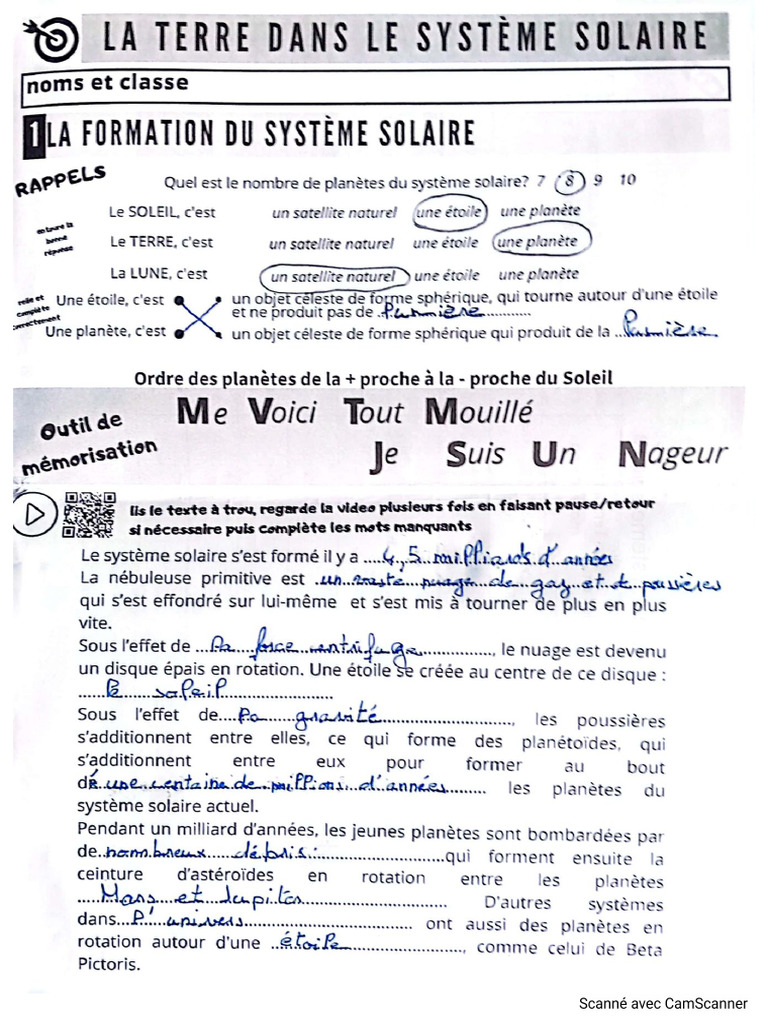 LA TERRE DANS LE SYSTÈME SOLAIRE
noms et classe
1 LA FORMATION DU SYSTÈME SOLAIRE
RAPPELS
Quel est le nombre de planètes du système solaire? 7 8 9 10
entoure la bonne réponse
Le SOLEIL, c'est un satellite naturel une étoile une planète
Le TERRE, c'est un satellite naturel une étoile une planète
La LUNE, c'est un satellite naturel une étoile une planète
relie et complète correctement
Une étoile, c'est un objet céleste de forme sphérique, qui tourne autour d'une étoile
et ne produit pas de lumière
Une planète, c'est un objet céleste de forme sphérique qui produit de la lumière
Ordre des planètes de la + proche à la - proche du Soleil
Outil de mémorisation
Me Voici Tout Mouillé
Je Suis Un Nageur
lis le texte à trou, regarde la video plusieurs fois en faisant pause/retour
si nécessaire puis complète les mots manquants
Le système solaire s'est formé il y a 4,5 milliards d'années
La nébuleuse primitive est un vaste nuage de gaz et de poussières
qui s'est effondré sur lui-même et s'est mis à tourner de plus en plus
vite.
Sous l'effet de la force centrifuge, le nuage est devenu
un disque épais en rotation. Une étoile se créée au centre de ce disque :
le soleil
Sous l'effet de la gravité, les poussières
s'additionnent entre elles, ce qui forme des planétoïdes, qui
s'additionnent entre eux pour former au bout
d' une centaine de millions d'années les planètes du
système solaire actuel.
Pendant un milliard d'années, les jeunes planètes sont bombardées par
de nombreux débris qui forment ensuite la
ceinture d'astéroïdes en rotation entre les planètes
Mars et Jupiter D'autres systèmes
dans l'univers ont aussi des planètes en
rotation autour d'une étoile, comme celui de Beta
Pictoris.
Scanné avec CamScanner